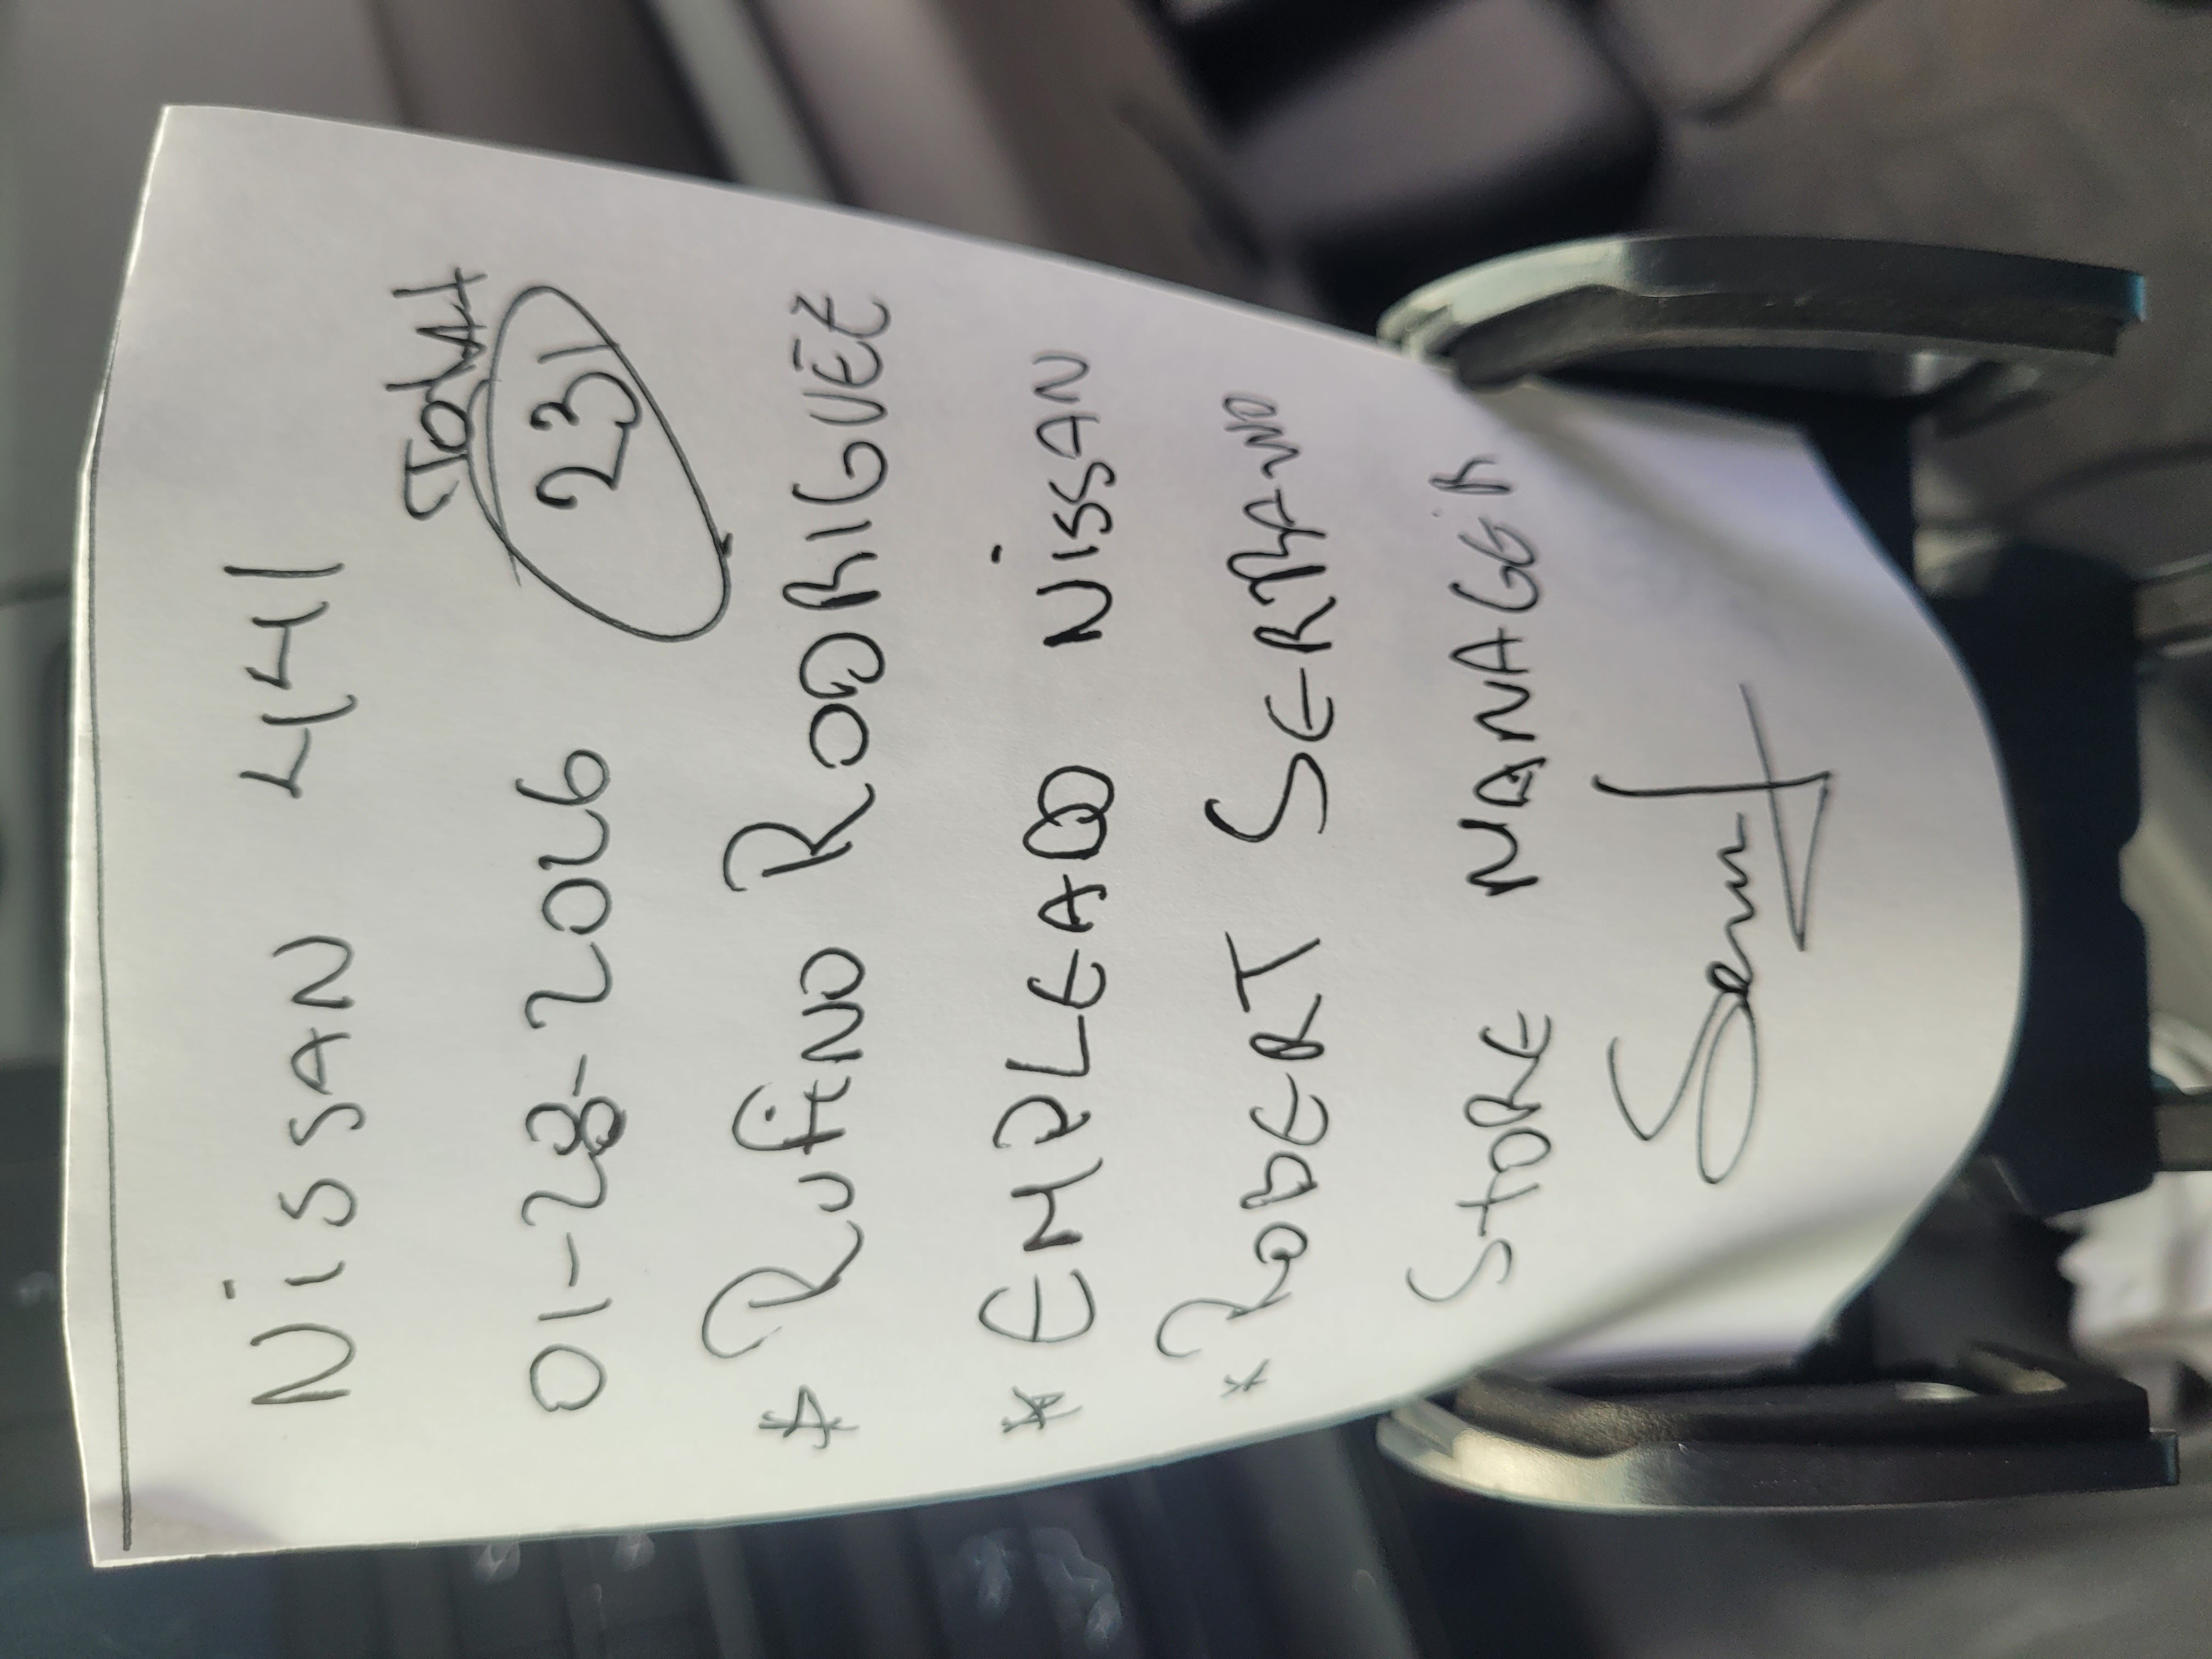 NISSAN 441
TOTAL
01-28-2026
231
* RUFINO RODRIGUEZ
* EMPLEADO NISSAN
* ROBERT SERRANO
STORE MANAGER